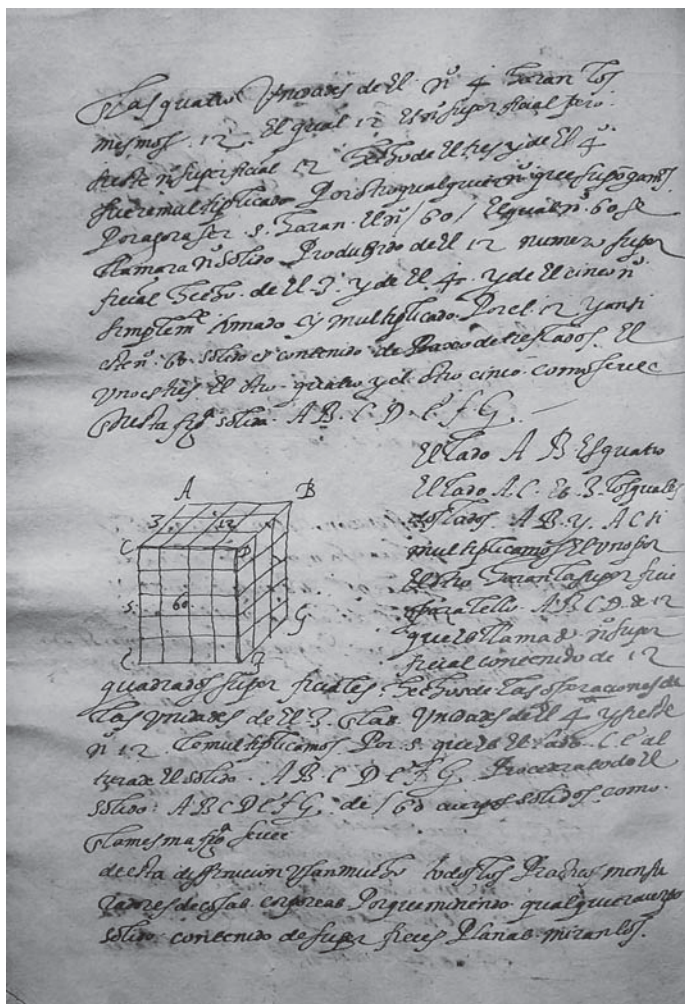 las quatro Unidades de El nº 4 haran los
mesmos 12. El qual 12 Es nº superficial pero
si este nº superficial 12 hecho de El tres y de El 4º
fuere multiplicado Por otro qualquier nº que supōgamos
Por agora ser .5. haran. El nº /60/ El qual nº. 60 se
llamara nº solido Produzido de El 12 numero super
ficial hecho. de El .3. y de El 4. y de El cinco nº
simplemᵗᵉ tomado y multiplicado Por el .12 y ansi
este nº. 60. solido es contenido de tres lados. El
Uno es tres El otro. quatro y el otro cinco. como se vee
En esta figª solida. A B. C D. e f G.
El lado A B. Es quatro
El lado A.C. Es .3. los quales
dos lados. A B. y. A C si
multiplicamos El Uno por
El otro haran la superficie
A B C D. de 12
que es llamado nº super
ficial contenido de 12
A B
3 12
C D
5 60
G
quadrados superficiales. hechos de las operaciones de
las Unidades de El 3. Unidades de El 4º y si este
nº 12 le multiplicamos Por 5 que es El lado. C e al
El solido. A B C D e f G. de El
solido: A B C D e f G. de /60 cuerpos solidos. como.
En la mesma figª se vee
de esta diffinicion Usan mucho todos los Practicos mensu
radores de cosas corporeas Porque midiendo qualquier cuerpo
solido contenido de superficies Planas miran los.